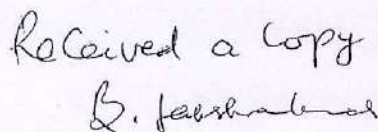 Received a Copy
B.